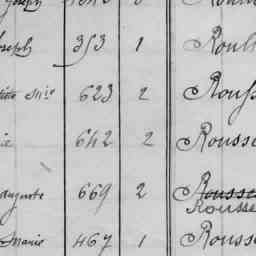 Joseph
oseph 353 1 Roul
623 2 Rouss
ie 642 2 Rousse
auguste 669 2 Rousse
Rousse
Marie 467 1 Rousse